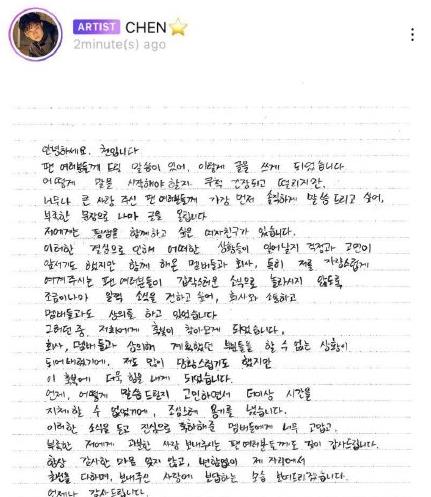 ARTIST CHEN
2minute(s) ago
안녕하세요. 첸입니다
팬 여러분들께 드릴 말씀이 있어, 이렇게 글을 쓰게 되었습니다
어떻게 말을 시작해야 할지 무척 긴장되고 떨리지만,
너무나 큰 사랑 주신 팬 여러분들께 가장 먼저 솔직하게 말씀 드리고 싶어,
부족한 문장으로 나마 글을 올립니다
저에게는 평생을 함께하고 싶은 여자친구가 있습니다.
이러한 결심으로 인해 어떠한 상황들이 일어날지 걱정과 고민이
앞서기도 했지만 함께 해온 멤버들과 회사, 특히 저를 자랑스럽게
여겨주시는 팬 여러분들이 갑작스러운 소식으로 놀라시지 않도록
조금이나마 일찍 소식을 전하고 싶어, 회사와 소통하고
멤버들과도 상의를 하고 있었습니다
그러던 중, 저희에게 축복이 찾아오게 되었습니다.
회사, 멤버들과 상의해 계획했던 부분들을 할 수 없는 상황이
되어버렸기에, 저도 많이 당황스럽기도 했지만
이 축복에 더욱 힘을 내게 되었습니다.
언제, 어떻게 말씀 드릴지 고민하면서 더이상 시간을
지체 할 수 없었기에, 조심스레 용기를 냈습니다.
이러한 소식을 듣고 진심으로 축하해준 멤버들에게 너무 고맙고,
부족한 저에게 과분한 사랑 보내주시는 팬 여러분들께도 깊이 감사드립니다.
항상 감사한 마음 잊지 않고, 변함없이 제 자리에서
최선을 다하며, 보내주신 사랑에 보답하는 모습 보여드리겠습니다.
언제나 감사드립니다.